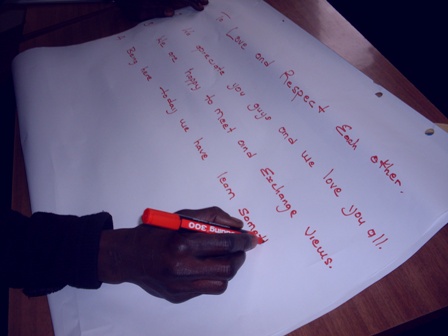 Love and Respect Each other.
We appreciate you guys and we love you all.
We are happy to meet and Exchange views.
Being here today we have learn Some
300